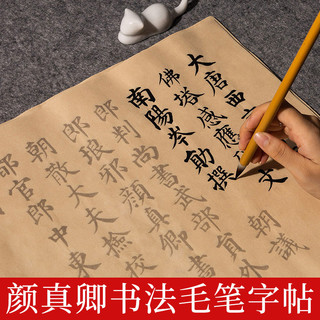 大唐西
佛塔感應
文
南陽岑勛撰
朝議
郎判尚書武部員外
郎琅邪顏真卿書
朝散大夫撿校
官郎中東
颜真卿书法毛笔字帖